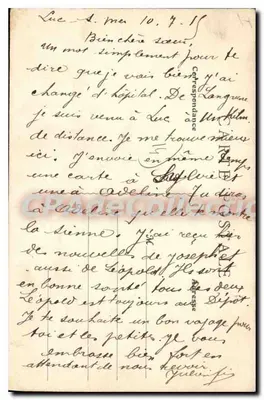 Luc s. mer 10.7.15
Bien chère sœur,
Un mot simplement pour te
dire que je vais bien j'ai
changé d'hôpital. De Langrune
je suis venu à Luc à un kilm
de distance. Je me trouve mieux
ici. J'envoie en même temps
une carte à
une à Adeline
à que elle
la sienne. J'ai reçu
des nouvelles de Joseph et
aussi de Léopold. Ils sont
en bonne santé tous les deux
Léopold est toujours au Dépôt.
Je te souhaite un bon voyage pour
toi et les petites je vous
embrasse bien fort en
attendant de nous revoir
Correspondance
Adresse